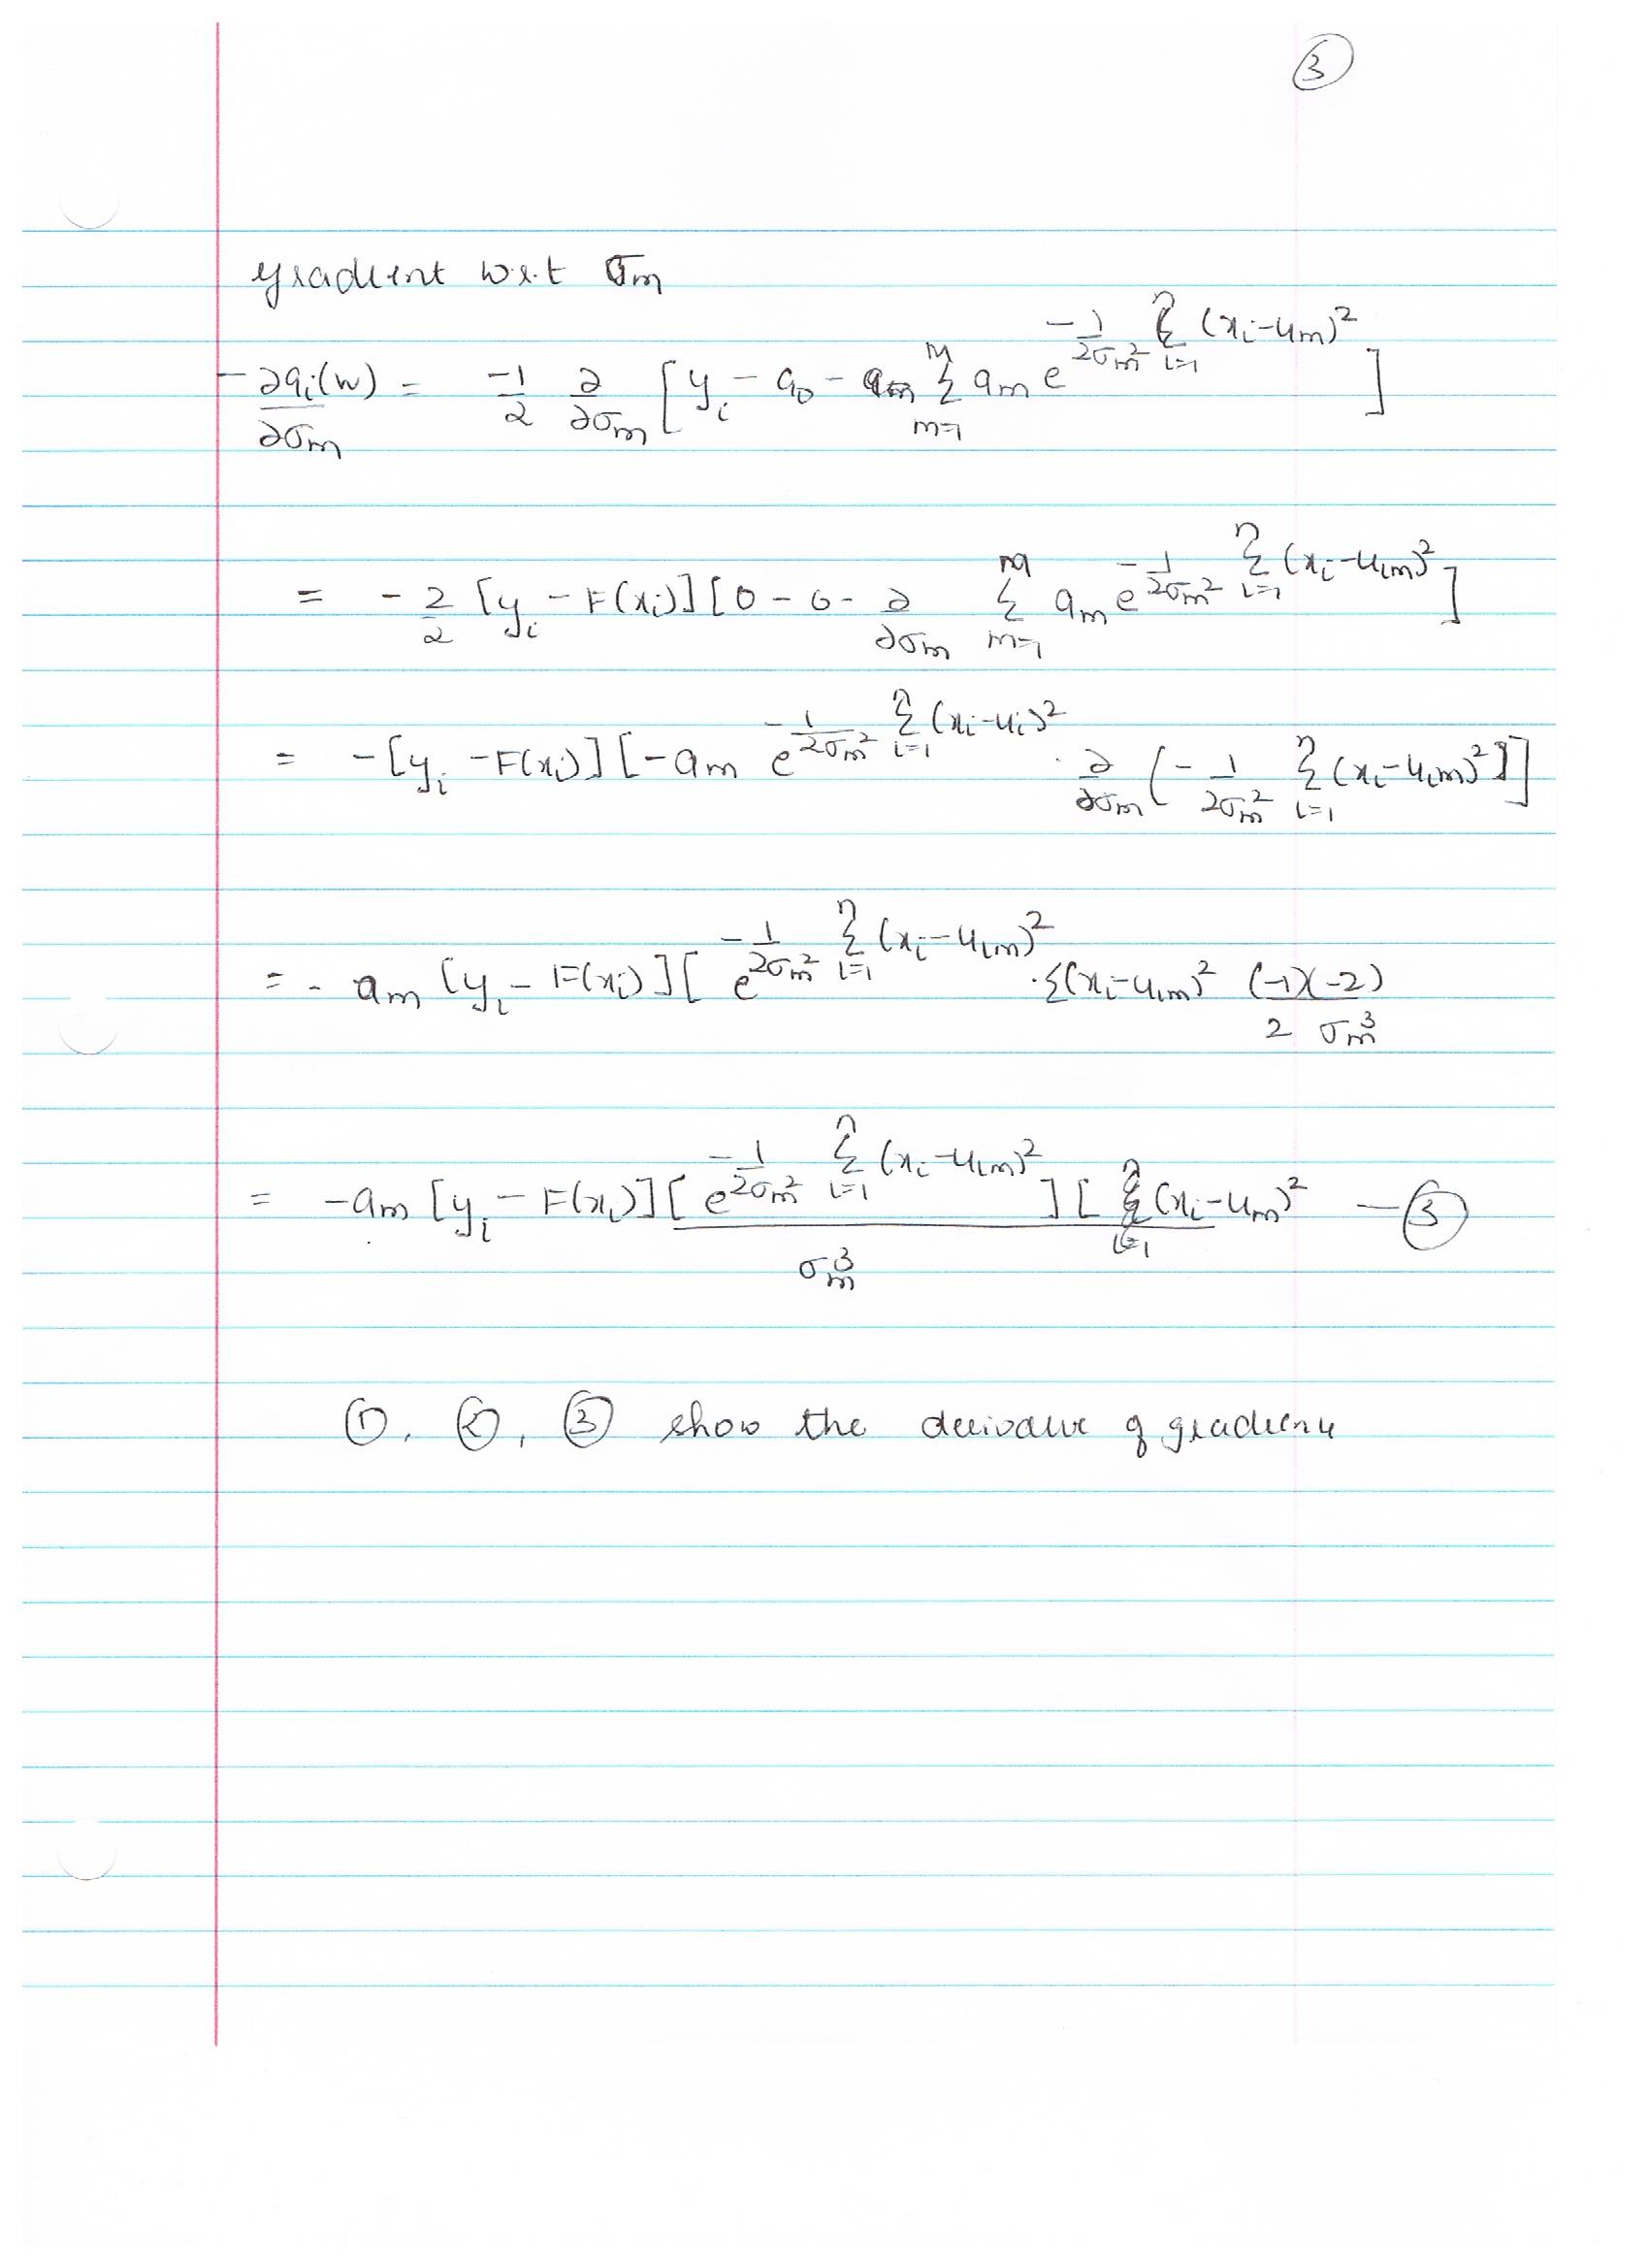 ③
gradient w.r.t σm
- ∂qi(w)/∂σm = -1/2 ∂/∂σm [yi - a0 - Σ_{m=1}^{M} am e^{-1/2σm² Σ_{i=1}^{n} (xi-um)²}]
= -2/2 [yi - F(xi)][0 - 0 - ∂/∂σm Σ_{m=1}^{M} am e^{-1/2σm² Σ_{i=1}^{n} (xi-uim)²}]
= -[yi - F(xi)][-am e^{-1/2σm² Σ_{i=1}^{n} (xi-ui)²} · ∂/∂σm (-1/2σm² Σ_{i=1}^{n} (xi-uim)²)]]
= - am [yi - F(xi)][e^{-1/2σm² Σ_{i=1}^{n} (xi-uim)²} · Σ(xi-uim)² (-1)(-2)/2 σm³
= -am [yi - F(xi)][e^{-1/2σm² Σ_{i=1}^{n} (xi-uim)²}][Σ_{i=1}^{n} (xi-um)² / σm³ — ③
①, ②, ③ show the derivative of gradient